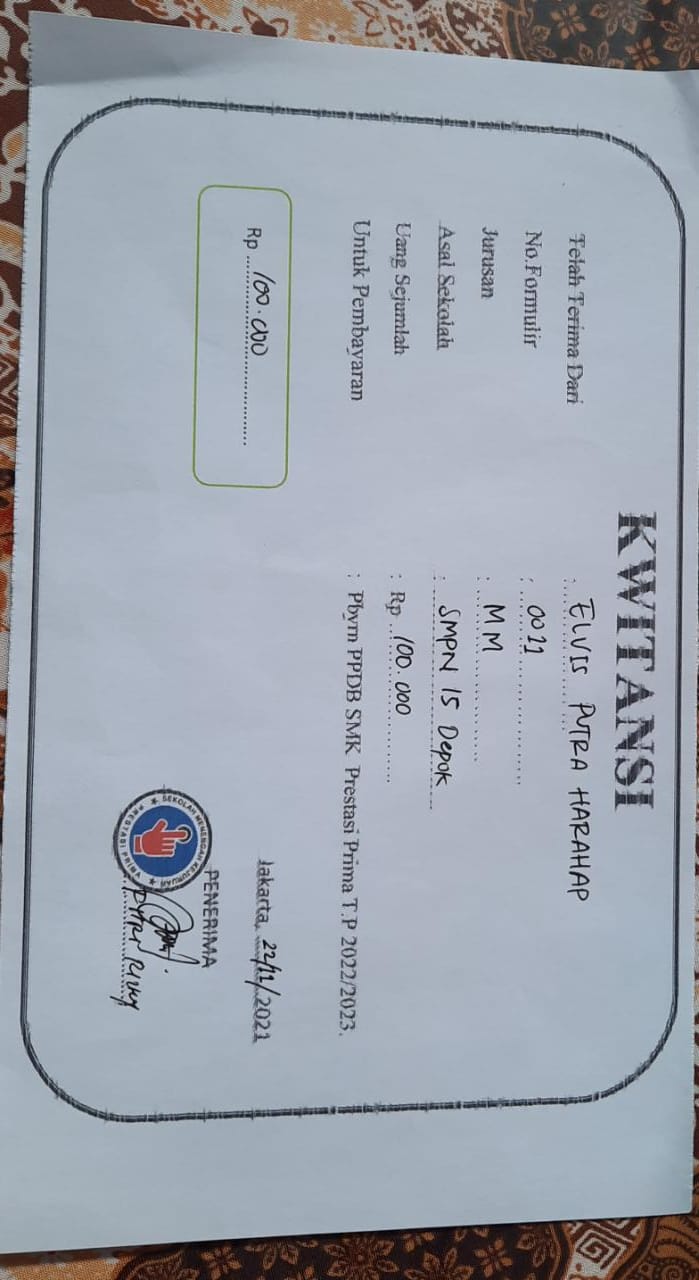 KWITANSI
Telah Terima Dari : ELVIS PUTRA HARAHAP
No.Formulir : 0021
Jurusan : MM
Asal Sekolah : SMPN 15 Depok
Uang Sejumlah : Rp 100.000
Untuk Pembayaran : Pbym PPDB SMK Prestasi Prima T.P 2022/2023.
Rp 100.000
Jakarta, 22/12/2021
PENERIMA
SEKOLAH MENENGAH KEJURUAN
PRESTASI PRIMA